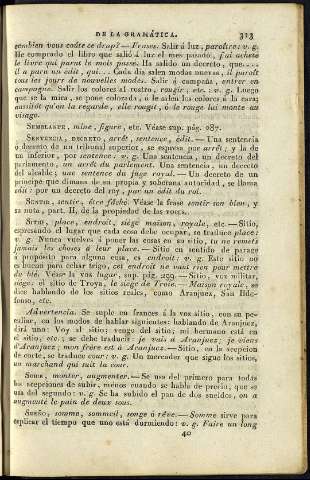 DE LA GRAMÁTICA. 313
combien vous coûte ce drap? — Frases. Salir á luz, paroître: v. g.
He comprado el libro que salió á luz el mes pasado, j'ai acheté
le livre qui parut le mois passé. Ha salido un decreto, que....
il a paru un édit, qui.... Cada dia salen modas nuevas, il paroît
tous les jours de nouvelles modes. Salir á campaña, entrer en
campagne. Salir los colores al rostro, rougir, etc. : v. g. Luego
que se la mira, se pone colorada, ó le salen los colores á la cara;
aussitôt qu'on la regarde, elle rougit, ó le rouge lui monte au
visage.
SEMBLANTE, mine, figure, etc. Véase sup. pág. 287.
SENTENCIA, DECRETO, arrêt, sentence, édit. — Una sentencia
ó decreto de un tribunal superior, se expresa por arrêt; y la de
un inferior, por sentence: v. g. Una sentencia, un decreto del
parlamento, un arrêt du parlement. Una sentencia, un decreto
del alcalde; une sentence du juge royal. — Un decreto de un
príncipe que dimana de su propia y soberana autoridad, se llama
édit: por un decreto del rey, par un édit du roi.
SENTIR, sentir, être fâché. Véase la frase sentir son bien, y
su nota, part. II, de la propiedad de las voces.
SITIO, place, endroit, siége maison, royale, etc. — Sitio,
expresando el lugar que cada cosa debe ocupar, se traduce place:
v. g. Nunca vuelves á poner las cosas en su sitio, tu ne remets
jamais les choses à leur place. — Sitio en sentido de parage
á propósito para alguna cosa, es endroit: v. g. Este sitio no
es bueno para echar trigo, cet endroit ne vaut rien pour mettre
du blé. Véase la voz lugar, sup. pág. 259. — Sitio, voz militar,
siége: el sitio de Troya, le siége de Troie. — Maison royale, se
dice hablando de los sitios reales, como Aranjuez, San Ilde-
fonso, etc.
Advertencia. Se suple en frances á la voz sitio, con su pe-
culiar, en los modos de hablar siguientes: hablando de Aranjuez,
dirá uno: Voy al sitio: vengo del sitio: mi hermano está en
el sitio, etc., se debe traducir: je vais à Aranjuez; je viens
d'Aranjuez; mon frère est à Aranjuez. — Sitio, en la acepcion
de corte, se traduce cour: v. g. Un mercader que sigue los sitios,
un marchand qui suit la cour.
SUBIR, monter, augmenter. — Se usa del primero para todas
las acepciones de subir, ménos cuando se habla de precio, que se
usa del segundo: v. g. Se ha subido el pan de dos sueldos, on a
augmenté le pain de deux sous.
SUEÑO, somme, sommeil, songe ó rêve. — Somme sirve para
explicar el tiempo que uno está durmiendo: v. g. Faire un long
40